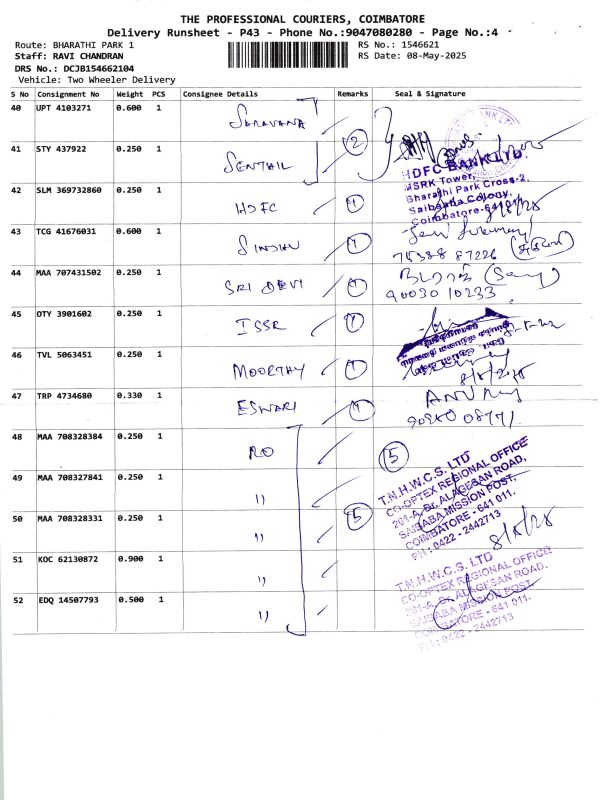 THE PROFESSIONAL COURIERS, COIMBATORE
Delivery Runsheet - P43 - Phone No.:9047080280 - Page No.:4
Route: BHARATHI PARK 1 RS No.: 1546621
Staff: RAVI CHANDRAN RS Date: 08-May-2025
DRS No.: DCJB154662104
Vehicle: Two Wheeler Delivery
S No Consignment No Weight PCS Consignee Details Remarks Seal & Signature
40 UPT 4103271 0.600 1 SARAVANA
41 STY 437922 0.250 1 SENTHIL 2
HDFC BANK LTD.
MSRK Tower,
Bharathi Park Cross-2,
Saibaba Colony,
42 SLM 369732860 0.250 1 HDFC 1
43 TCG 41676031 0.600 1 SINDHU 1
75388 87226
44 MAA 707431502 0.250 1 SRI DEVI 1
90030 10233
45 OTY 3901602 0.250 1 ISSR 1
46 TVL 5063451 0.250 1 MOORTHY 1
47 TRP 4734680 0.330 1 ESWARI 1
90280 08771
48 MAA 708328384 0.250 1 RO 5
49 MAA 708327841 0.250 1 "
50 MAA 708328331 0.250 1 " 5
T.N.H.W.C.S. LTD
CO-OPTEX REGIONAL OFFICE
201-A, Dr. ALAGESAN ROAD,
SAIBABA MISSION POST,
COIMBATORE - 641 011.
PH : 0422 - 2442713
51 KOC 62130872 0.900 1 "
52 EDQ 14507793 0.500 1 "
T.N.H.W.C.S. LTD
CO-OPTEX REGIONAL OFFICE
201-A, Dr. ALAGESAN ROAD.
SAIBABA MISSION POST,
COIMBATORE - 641 011.
PH : 0422 - 2442713